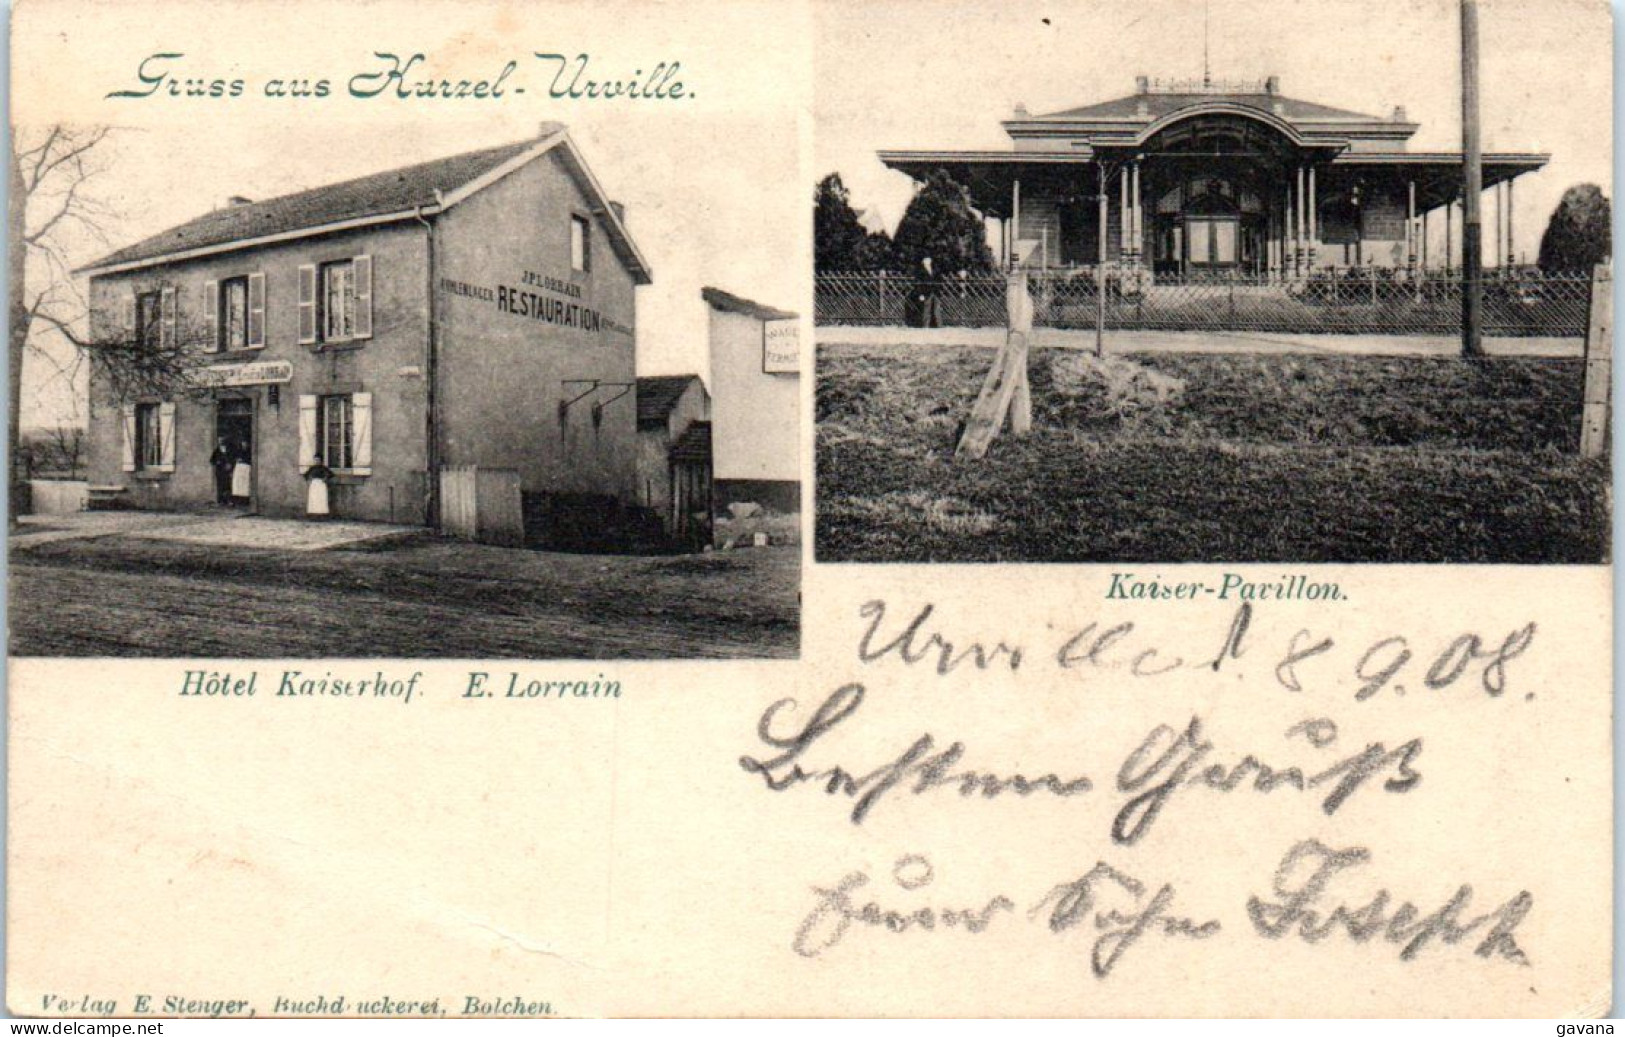 Gruss aus Kurzel-Urville.
J.P. LORRAIN
KOHLENLAGER RESTAURATION
LORRAIN
Kaiser-Pavillon.
Hôtel Kaiserhof. E. Lorrain
Urville d. 8.9.08.
Besten Gruß
Euer Sohn Joseph
Verlag E. Stenger, Buchdruckerei, Bolchen.
www.delcampe.net
gavana